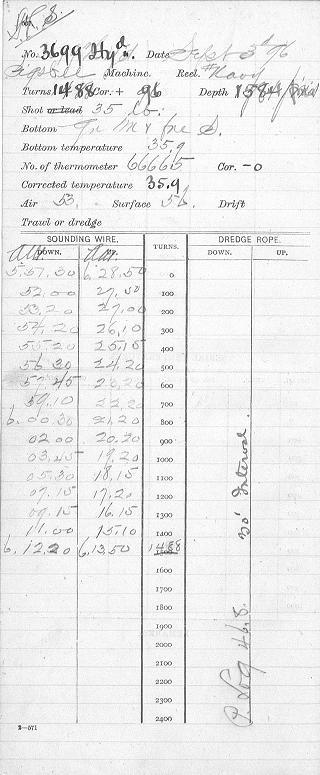 No. 3699 Hyd. Date Sept 3d 96
Machine. Reel. Navy
Turns 1488 Cor. + 96 Depth 1584
Shot or lead 35 lb.
Bottom gn M & fne S.
Bottom temperature 35.9
No. of thermometer 66665 Cor. - 0
Corrected temperature 35.9
Air 53. Surface 56. Drift
Trawl or dredge
SOUNDING WIRE. TURNS. DREDGE ROPE.
DOWN. UP. DOWN. UP.
5.51.30 6.28.50 0
52.00 27.50 100
53.20 27.00 200
54.20 26.10 300
55.20 25.15 400
56.30 24.20 500
57.45 23.20 600
59.10 22.20 700
6.00.30 21.20 800
02.00 20.20 900
03.45 19.20 1000
05.30 18.15 1100
07.15 17.20 1200
09.15 16.15 1300
11.00 15.10 1400
6.12.20 6.13.50 1488
1600
1700
1800
1900
2000
2100
2200
2300
2400
P. Log 46.8. 30' Interval.
2—571